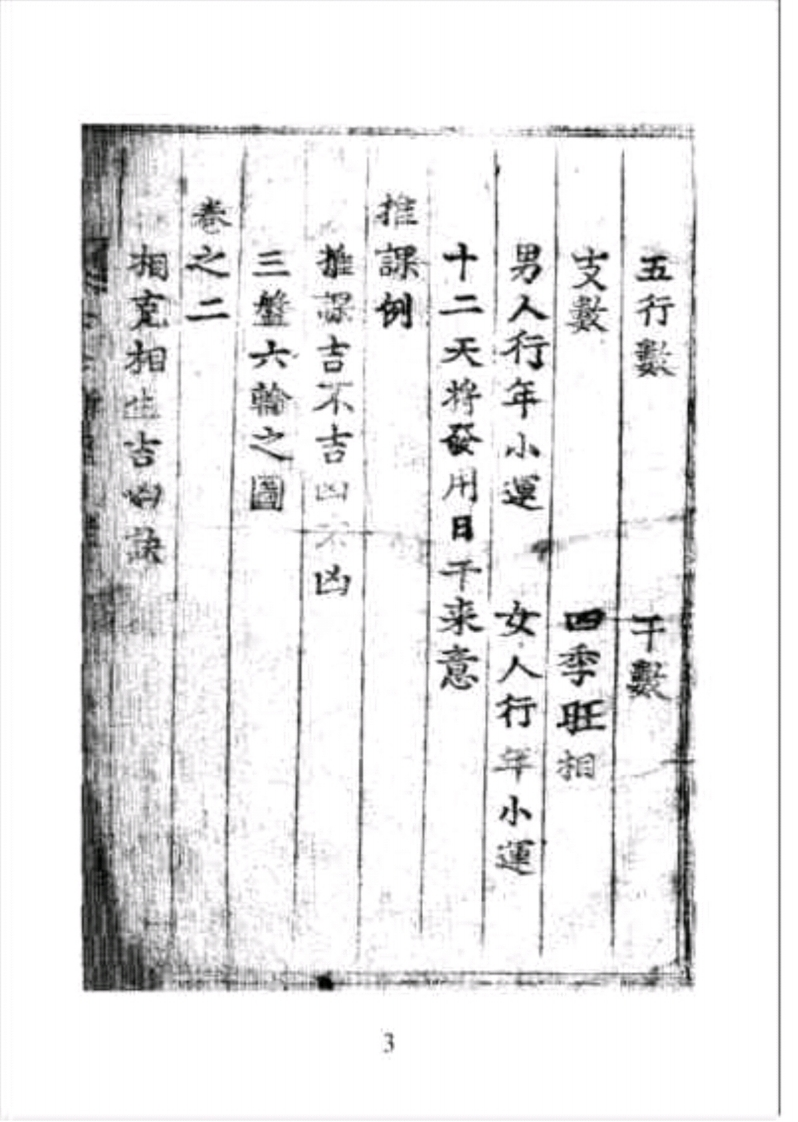 五行數 干數
支數 四季旺相
男人行年小運 女人行年小運
十二天将發用日干来意
推課例
推課吉不吉凶不凶
三盤六輪之圖
卷之二
相克相生吉凶訣
3